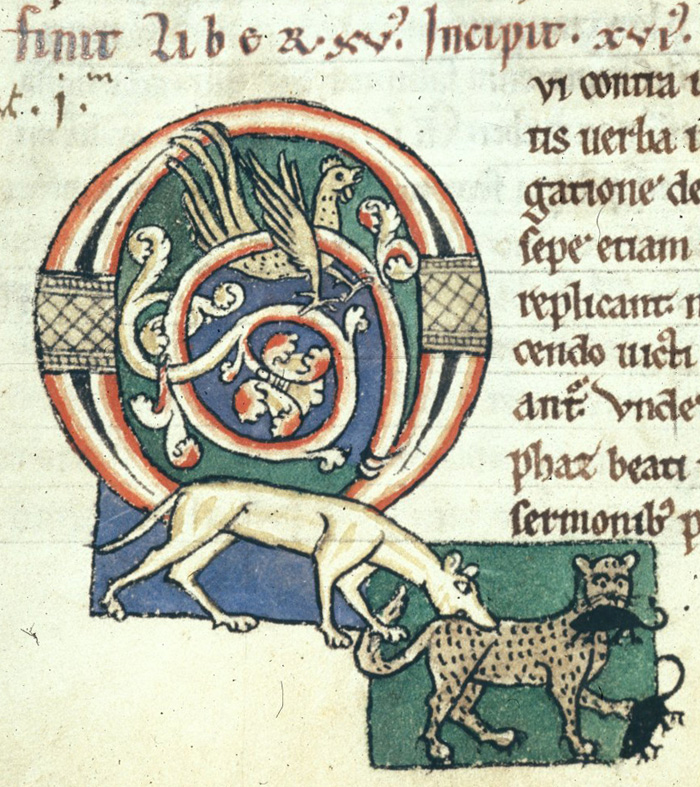 finit Liber .xv. Incipit . xvi.
vi contra
tis uerba
gatione de
sepe etiam
replicant
cendo uicti
ant. Vnde
phaz beati
sermonib; p